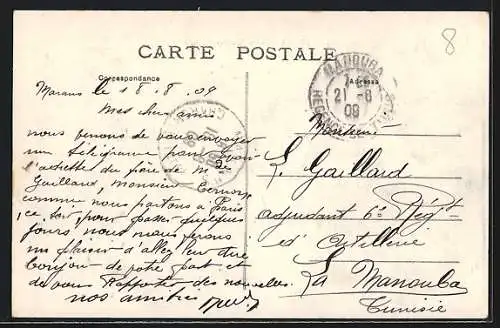 CARTE POSTALE
Correspondance
Adresse
8
Marans le 18.8.09
Mes chers amis
nous venons de vous envoyer
un télégramme pour avoir
l'adresse du père de M.
Gaillard, Monsieur
comme nous partons à Paris
ce soir, pour passer quelques
jours nous nous ferons
un plaisir d'aller leur dire
bonjour de votre part et
de vous rapporter des nouvelles.
nos amitiés
MANOUBA
21-8
09
REGENCE DE TUNIS
Monsieur
L. Gaillard
adjudant 6e Régt
d'Artillerie
La Manouba
Tunisie